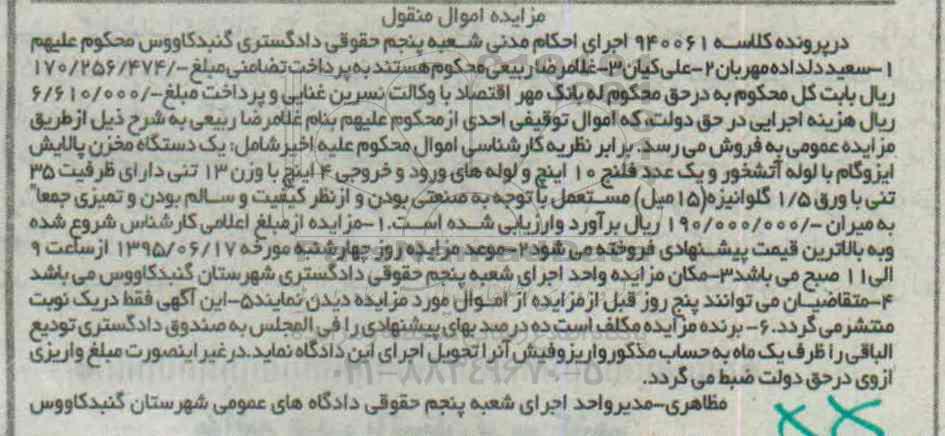 مزایده اموال منقول
درپرونده کلاسه ۹۴۰۰۶۱ اجرای احکام مدنی شعبه پنجم حقوقی دادگستری گنبدکاووس محکوم علیهم
۱-سعید دلداده مهربان۲-علی کیان۳-غلامرضا ربیعی محکوم هستند به پرداخت تضامنی مبلغ -/۱۷۰/۲۵۶/۴۷۴
ریال بابت کل محکوم به درحق محکوم له بانک مهر اقتصاد با وکالت نسرین غنایی و پرداخت مبلغ-/۶/۶۱۰/۰۰۰
ریال هزینه اجرایی در حق دولت، که اموال توقیفی احدی از محکوم علیهم بنام غلامرضا ربیعی به شرح ذیل از طریق
مزایده عمومی به فروش می رسد. برابر نظریه کارشناسی اموال محکوم علیه اخیر شامل: یک دستگاه مخزن پالایش
ایزوگام با لوله آتشخور و یک عدد فلنج ۱۰ اینچ و لوله های ورود و خروجی ۴ اینچ با وزن ۱۳ تنی دارای ظرفیت ۳۵
تنی با ورق ۱/۵ گلوانیزه(۱۵میل) مستعمل با توجه به صنعتی بودن و ازنظر کیفیت و سالم بودن و تمیزی جمعا"
به میران -/۱۹۰/۰۰۰/۰۰۰ ریال برآورد وارزیابی شده است.۱-مزایده ازمبلغ اعلامی کارشناس شروع شده
وبه بالاترین قیمت پیشنهادی فروخته می شود۲-موعد مزایده روز چهارشنبه مورخه ۱۳۹۵/۰۶/۱۷ ازساعت ۹
الی۱۱ صبح می باشد۳-مکان مزایده واحد اجرای شعبه پنجم حقوقی دادگستری شهرستان گنبدکاووس می باشد
۴-متقاضیان می توانند پنج روز قبل ازمزایده از اموال مورد مزایده دیدن نمایند۵-این آگهی فقط دریک نوبت
منتشرمی گردد.۶- برنده مزایده مکلف است ده درصد بهای پیشنهادی را فی المجلس به صندوق دادگستری تودیع
الباقی را ظرف یک ماه به حساب مذکور واریز وفیش آنرا تحویل اجرای این دادگاه نماید.درغیر اینصورت مبلغ واریزی
ازوی درحق دولت ضبط می گردد.
۰۲۱-۸۸۳۴۹۶۷۰-۵
مظاهری-مدیرواحد اجرای شعبه پنجم حقوقی دادگاه های عمومی شهرستان گنبدکاووس